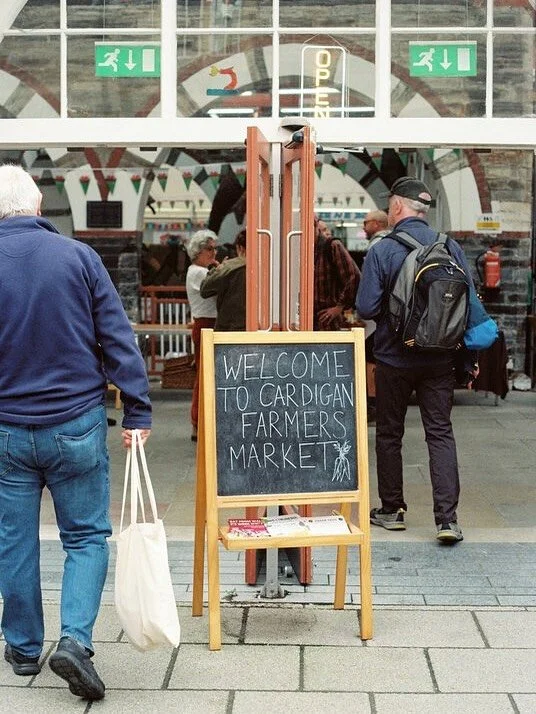 OPEN
WELCOME
TO CARDIGAN
FARMERS
MARKET